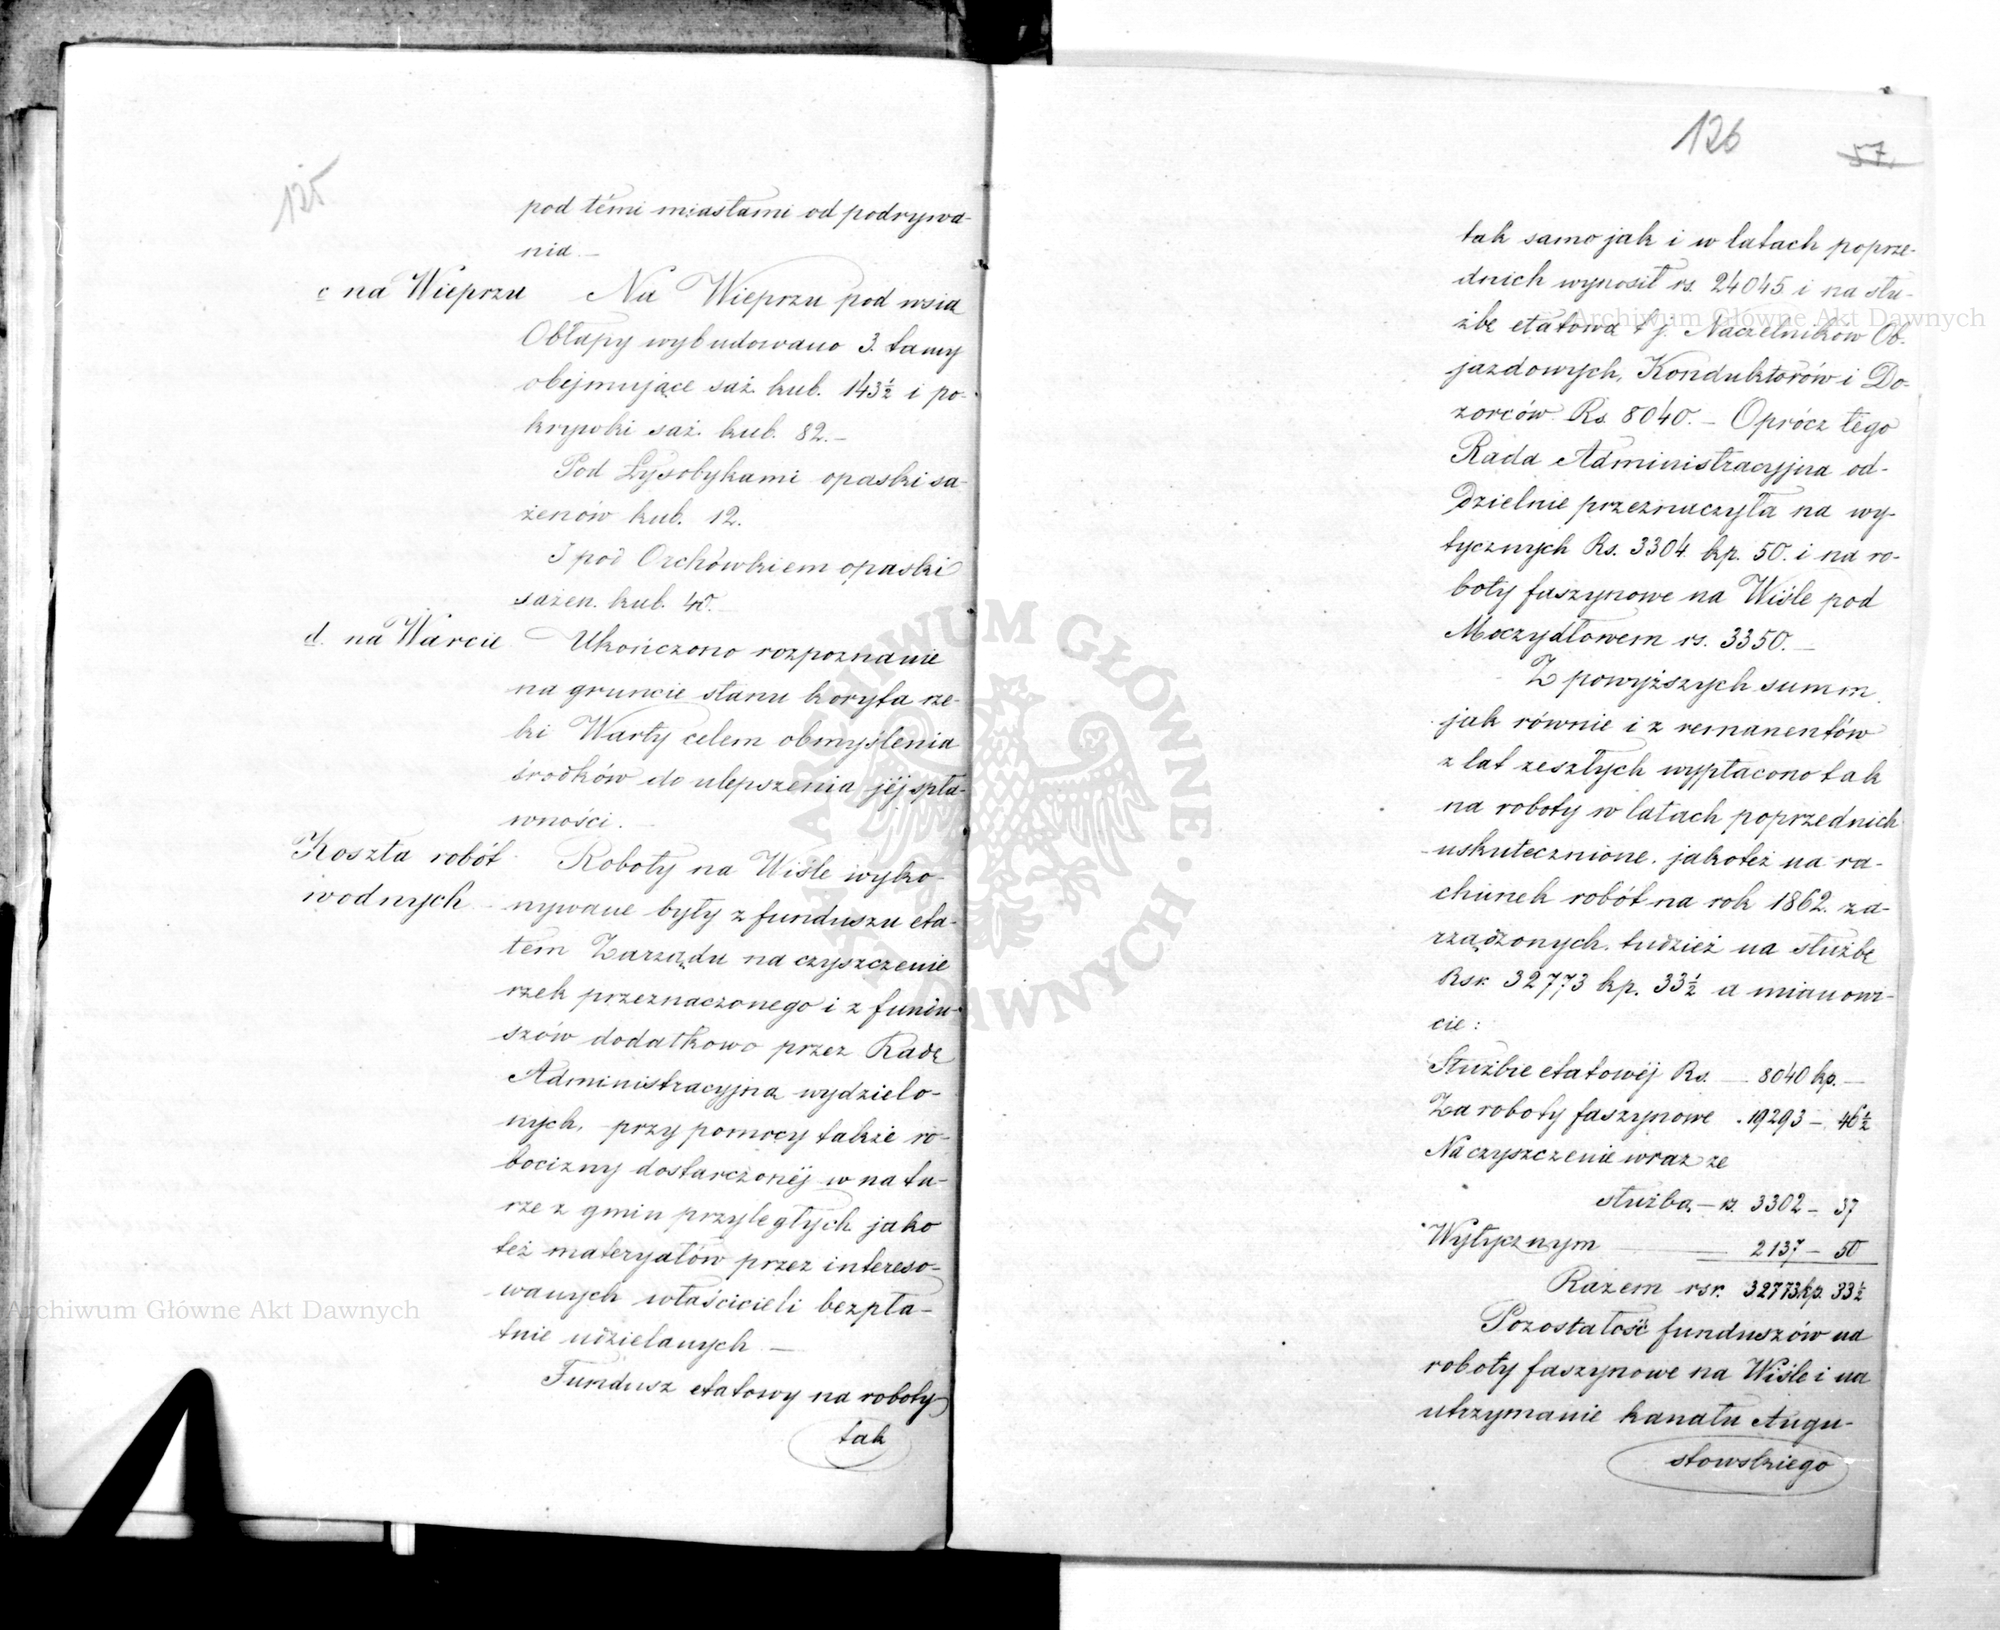 125
pod témi miastami od podrywa-
nia. –
c na Wieprzu
Na Wieprzu pod wsią
Obłapy wybudowano 3. tamy
obejmujące saż. kub. 143½ i po-
krywki saż. kub. 82. –
Pod Łysobykami opaski są-
żenów kub. 12.
I pod Orchówkiem opaski
sażen. kub. 40. –
d. na Warcie
Ukończono rozpoznanie
na gruncie stanu koryta rze-
ki Warty celem obmyślenia
środków do ulepszenia jéj spła-
wności. –
Koszta robót
wodnych
Roboty na Wiśle wyko-
nywane były z funduszu eta-
tem Zarządu na czyszczenie
rzek przeznaczonego i z fundu-
szów dodatkowo przez Radę
Administracyjną wydzielo-
nych, przy pomocy także ro-
bocizny dostarczonéj w natu-
rze z gmin przyległych jako
też materyałów przez intereso-
wanych właścicieli bezpła-
tnie udzielanych. –
Fundusz etatowy na roboty
tak
126
57.
tak samo jak i w latach poprze-
dnich wynosił rs. 24045 i na słu-
żbę etatową t. j. Naczelników Ob-
jazdowych, Konduktorów i Do-
zorców Rs. 8040. – Oprócz tego
Rada Administracyjna od-
dzielnie przeznaczyła na wy-
tycznych Rs. 3304 kp. 50. i na ro-
boty faszynowe na Wiśle pod
Moczydłowem rs. 3350. –
Z powyższych summ
jak równie i z remanentów
z lat zeszłych wypłacono tak
na roboty w latach poprzednich
uskutecznione. jakoteż na ra-
chunek robót na rok 1862. za-
rządzonych. tudzież na służbę
Rsr. 32773 kp. 33½ a mianowi-
cie:
Służbie etatowéj Rs. — 8040 kp. —
Za roboty faszynowe . 19293 – 46½
Na czyszczenie wraz ze
służbą – rs. 3302 – 37
Wytycznym — 2137 – 50
Razem rsr. 32773 kp. 33½
Pozostałość funduszów na
roboty faszynowe na Wiśle i na
utrzymanie kanału Augu-
stowskiego
Archiwum Główne Akt Dawnych
Archiwum Główne Akt Dawnych
ARCHIWUM GŁÓWNE AKT DAWNYCH